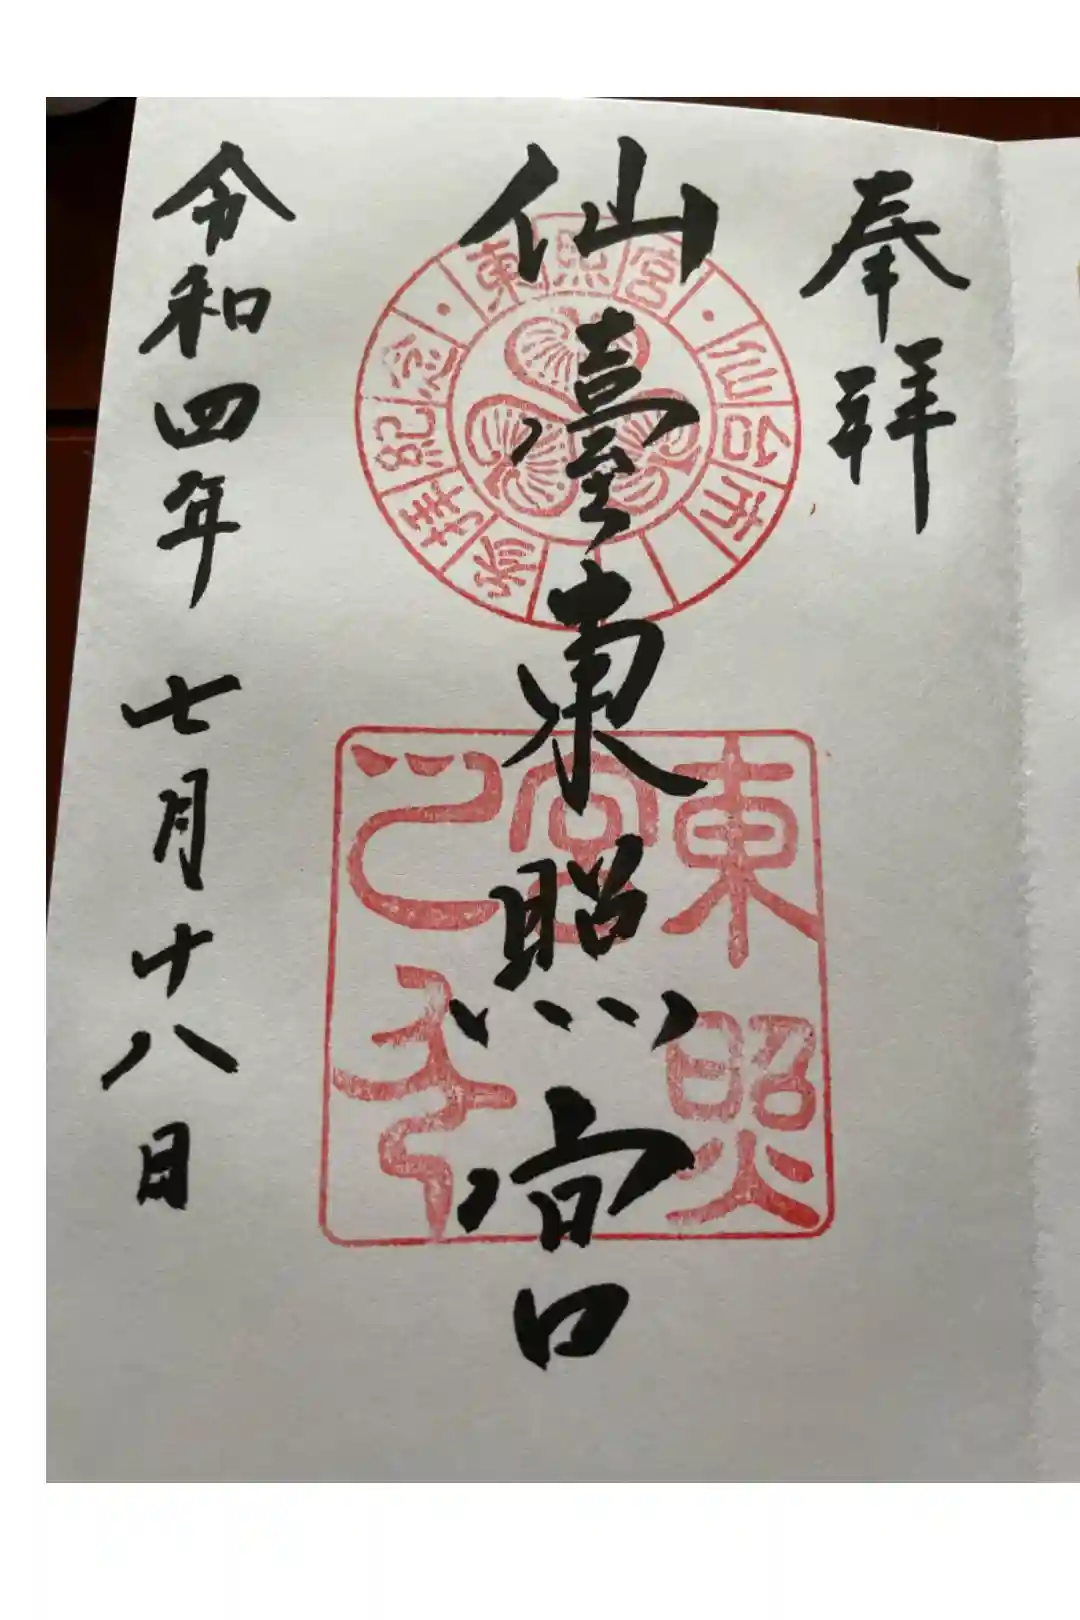 奉拝
仙臺東照宮
令和四年 七月十八日
東照宮・仙台市
参拝紀念・
東照
宮